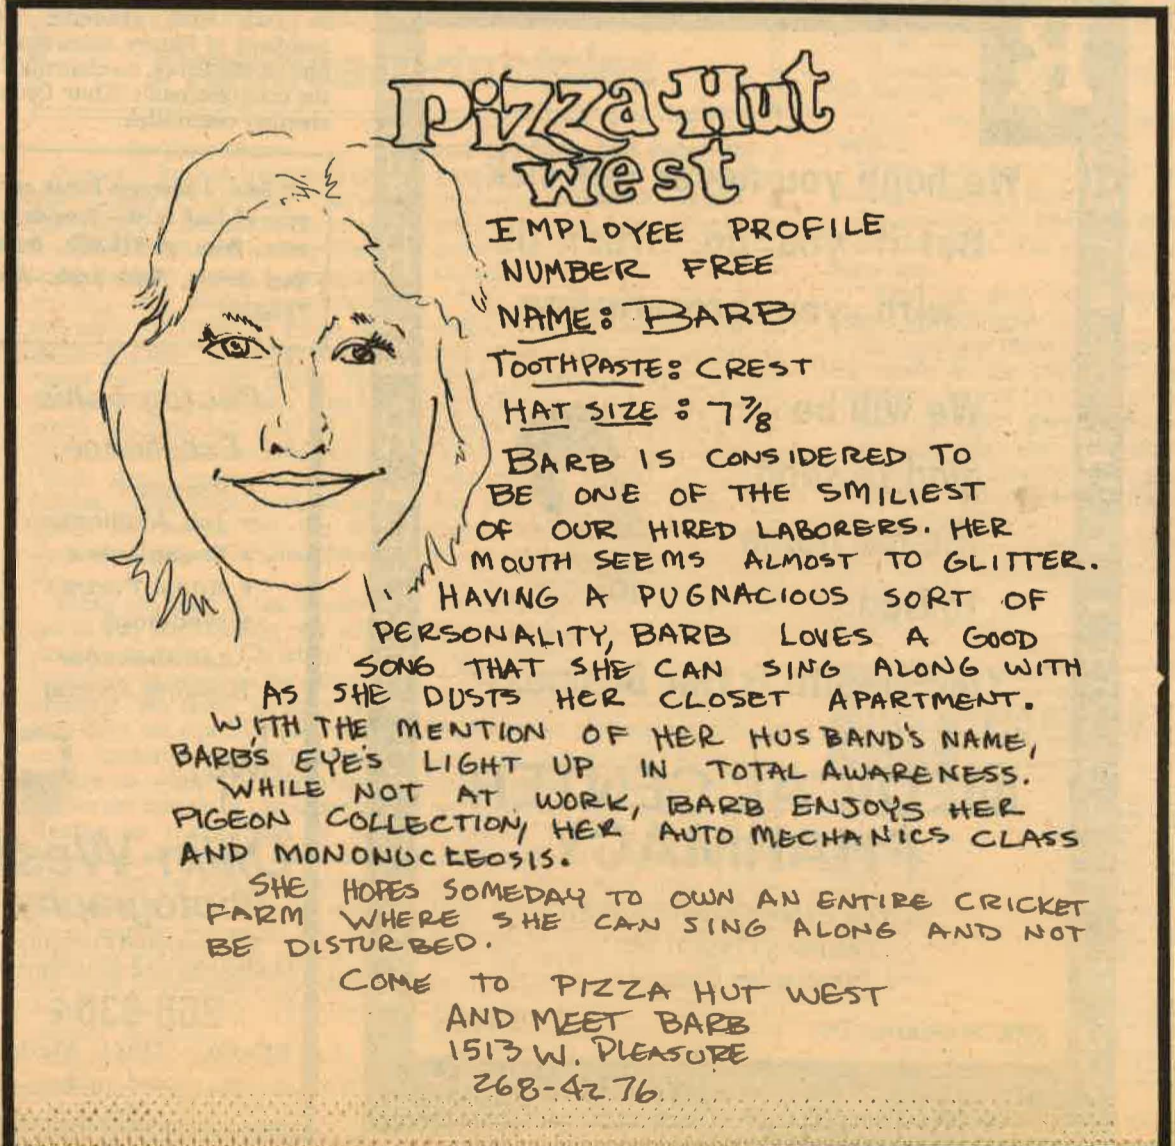 Pizza Hut
West
EMPLOYEE PROFILE
NUMBER FREE
NAME: BARB
TOOTHPASTE: CREST
HAT SIZE: 7 7/8
BARB IS CONSIDERED TO
BE ONE OF THE SMILIEST
OF OUR HIRED LABORERS. HER
MOUTH SEEMS ALMOST TO GLITTER.
HAVING A PUGNACIOUS SORT OF
PERSONALITY, BARB LOVES A GOOD
SONG THAT SHE CAN SING ALONG WITH
AS SHE DUSTS HER CLOSET APARTMENT.
WITH THE MENTION OF HER HUSBAND'S NAME,
BARB'S EYE'S LIGHT UP IN TOTAL AWARENESS.
WHILE NOT AT WORK, BARB ENJOYS HER
PIGEON COLLECTION, HER AUTO MECHANICS CLASS
AND MONONUCLEOSIS.
SHE HOPES SOMEDAY TO OWN AN ENTIRE CRICKET
FARM WHERE SHE CAN SING ALONG AND NOT
BE DISTURBED.
COME TO PIZZA HUT WEST
AND MEET BARB
1513 W. PLEASURE
268-4276